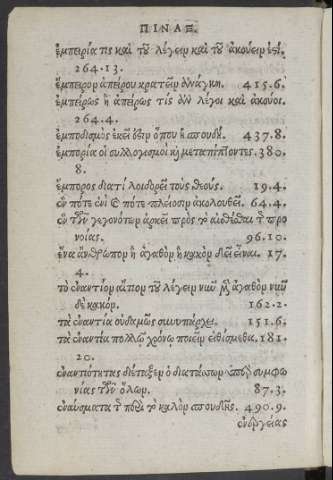 ΠΙΝΑΞ.
ἐμπειρία τις καὶ τοῦ λέγειν καὶ τοῦ ἀκούειν ἐςί.
264.13.
ἔμπειρον ἀπείρου κρατεῖν ἀνάγκη. 415.6.
ἐμπείρως ἢ ἀπείρως τὶς ἂν λέγοι καὶ ἀκούοι.
264.4.
ἐμποδισμὸς ἐκεῖ ὅπου ἡ σπουδή. 437.8.
ἐμπορία οἱ συλλογισμοὶ κỳ μεταπίπτοντες. 380.
8.
ἔμπορος διατί λοιδορεῖ τοὺς θεούς. 19.4.
ἓν πότε ἑνὶ πότε πλείοσιν ἀκολουθεῖ. 64.4.
ἓν τῶν γεγονότων ἀρκεῖ πρὸς τὸ αἰσθέσθαι τῆς προ
νοίας. 96.10.
ἕνα ἄνθρωπον ἢ ἀγαθὸν ἢ κακὸν δεῖ εἶναι. 17.
4.
τὸ ἐναντίον αἴτιον τοῦ λέγειν νυνὶ μὲν ἀγαθὸν νυνὶ
δὲ κακόν. 162.2.
τὰ ἐναντία οὐδαμῶς συνυπάρχει. 151.6.
τὰ ἐναντία πολλῷ χρόνῳ ποιεῖν εἰθίσμεθα. 181.
20.
ἐναντιότητας διέταξεν ὁ διατάσσων ὑπὲρ συμφω
νίας τῶν ὅλων. 87.3.
ἐναύσματα τῆς περὶ τὸ καλὸν σπουδῆς. 490.9.
ἐναργείας